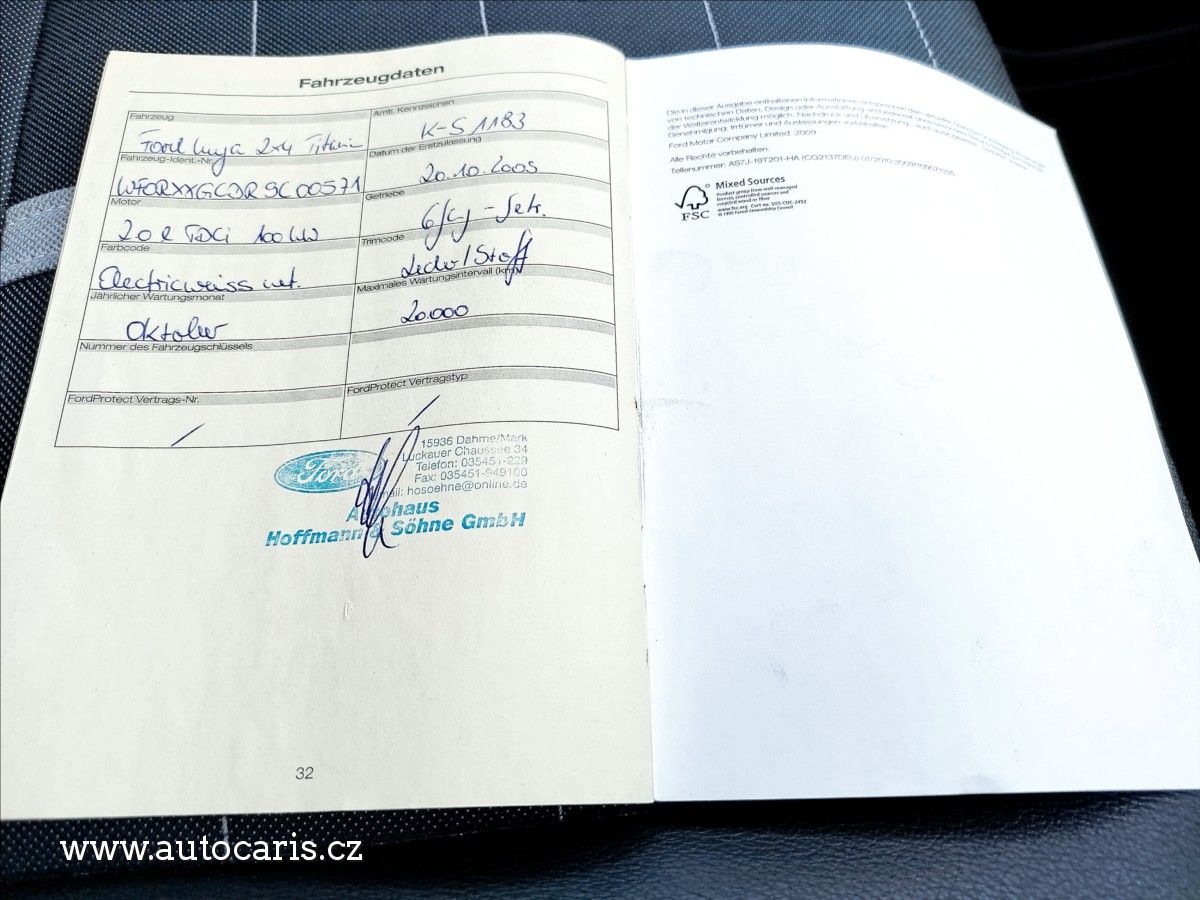 Fahrzeugdaten
Fahrzeug
Ford Kuga 2x4 Titanium
Amtl. Kennzeichen
K-S 1183
Fahrzeug-Ident.-Nr.
Datum der Erstzulassung
20.10.2009
Motor
2.0 l TDCi 100 kW
Getriebe
6 Gg - Setr.
Farbcode
Electricweiss met.
Trimcode
Leder/Stoff
Jährlicher Wartungsmonat
Oktober
Maximales Wartungsintervall (km)
20.000
Nummer des Fahrzeugschlüssels
FordProtect Vertrags-Nr.
FordProtect Vertragstyp
15936 Dahme/Mark
Luckauer Chaussee 34
Telefon: 035451-229
Fax: 035451-949100
hosoehne@online.de
Ford
Autohaus
Hoffmann & Söhne GmbH
32
Die in dieser Ausgabe enthaltenen Informationen entsprechen
von technischen Daten, Design oder Ausstattung und
der Weiterentwicklung möglich. Nachdruck und Übersetzung
Genehmigung. Irrtümer und Auslassungen vorbehalten.
Ford Motor Company Limited 2009
Alle Rechte vorbehalten.
Teilenummer: AS7J-19T201-HA (CG2137DEU) 01/2010
FSC
Mixed Sources
Product group from well-managed
forests, controlled sources and
recycled wood or fiber
www.fsc.org Cert no. SGS-COC-2452
© 1996 Forest Stewardship Council
www.autocaris.cz